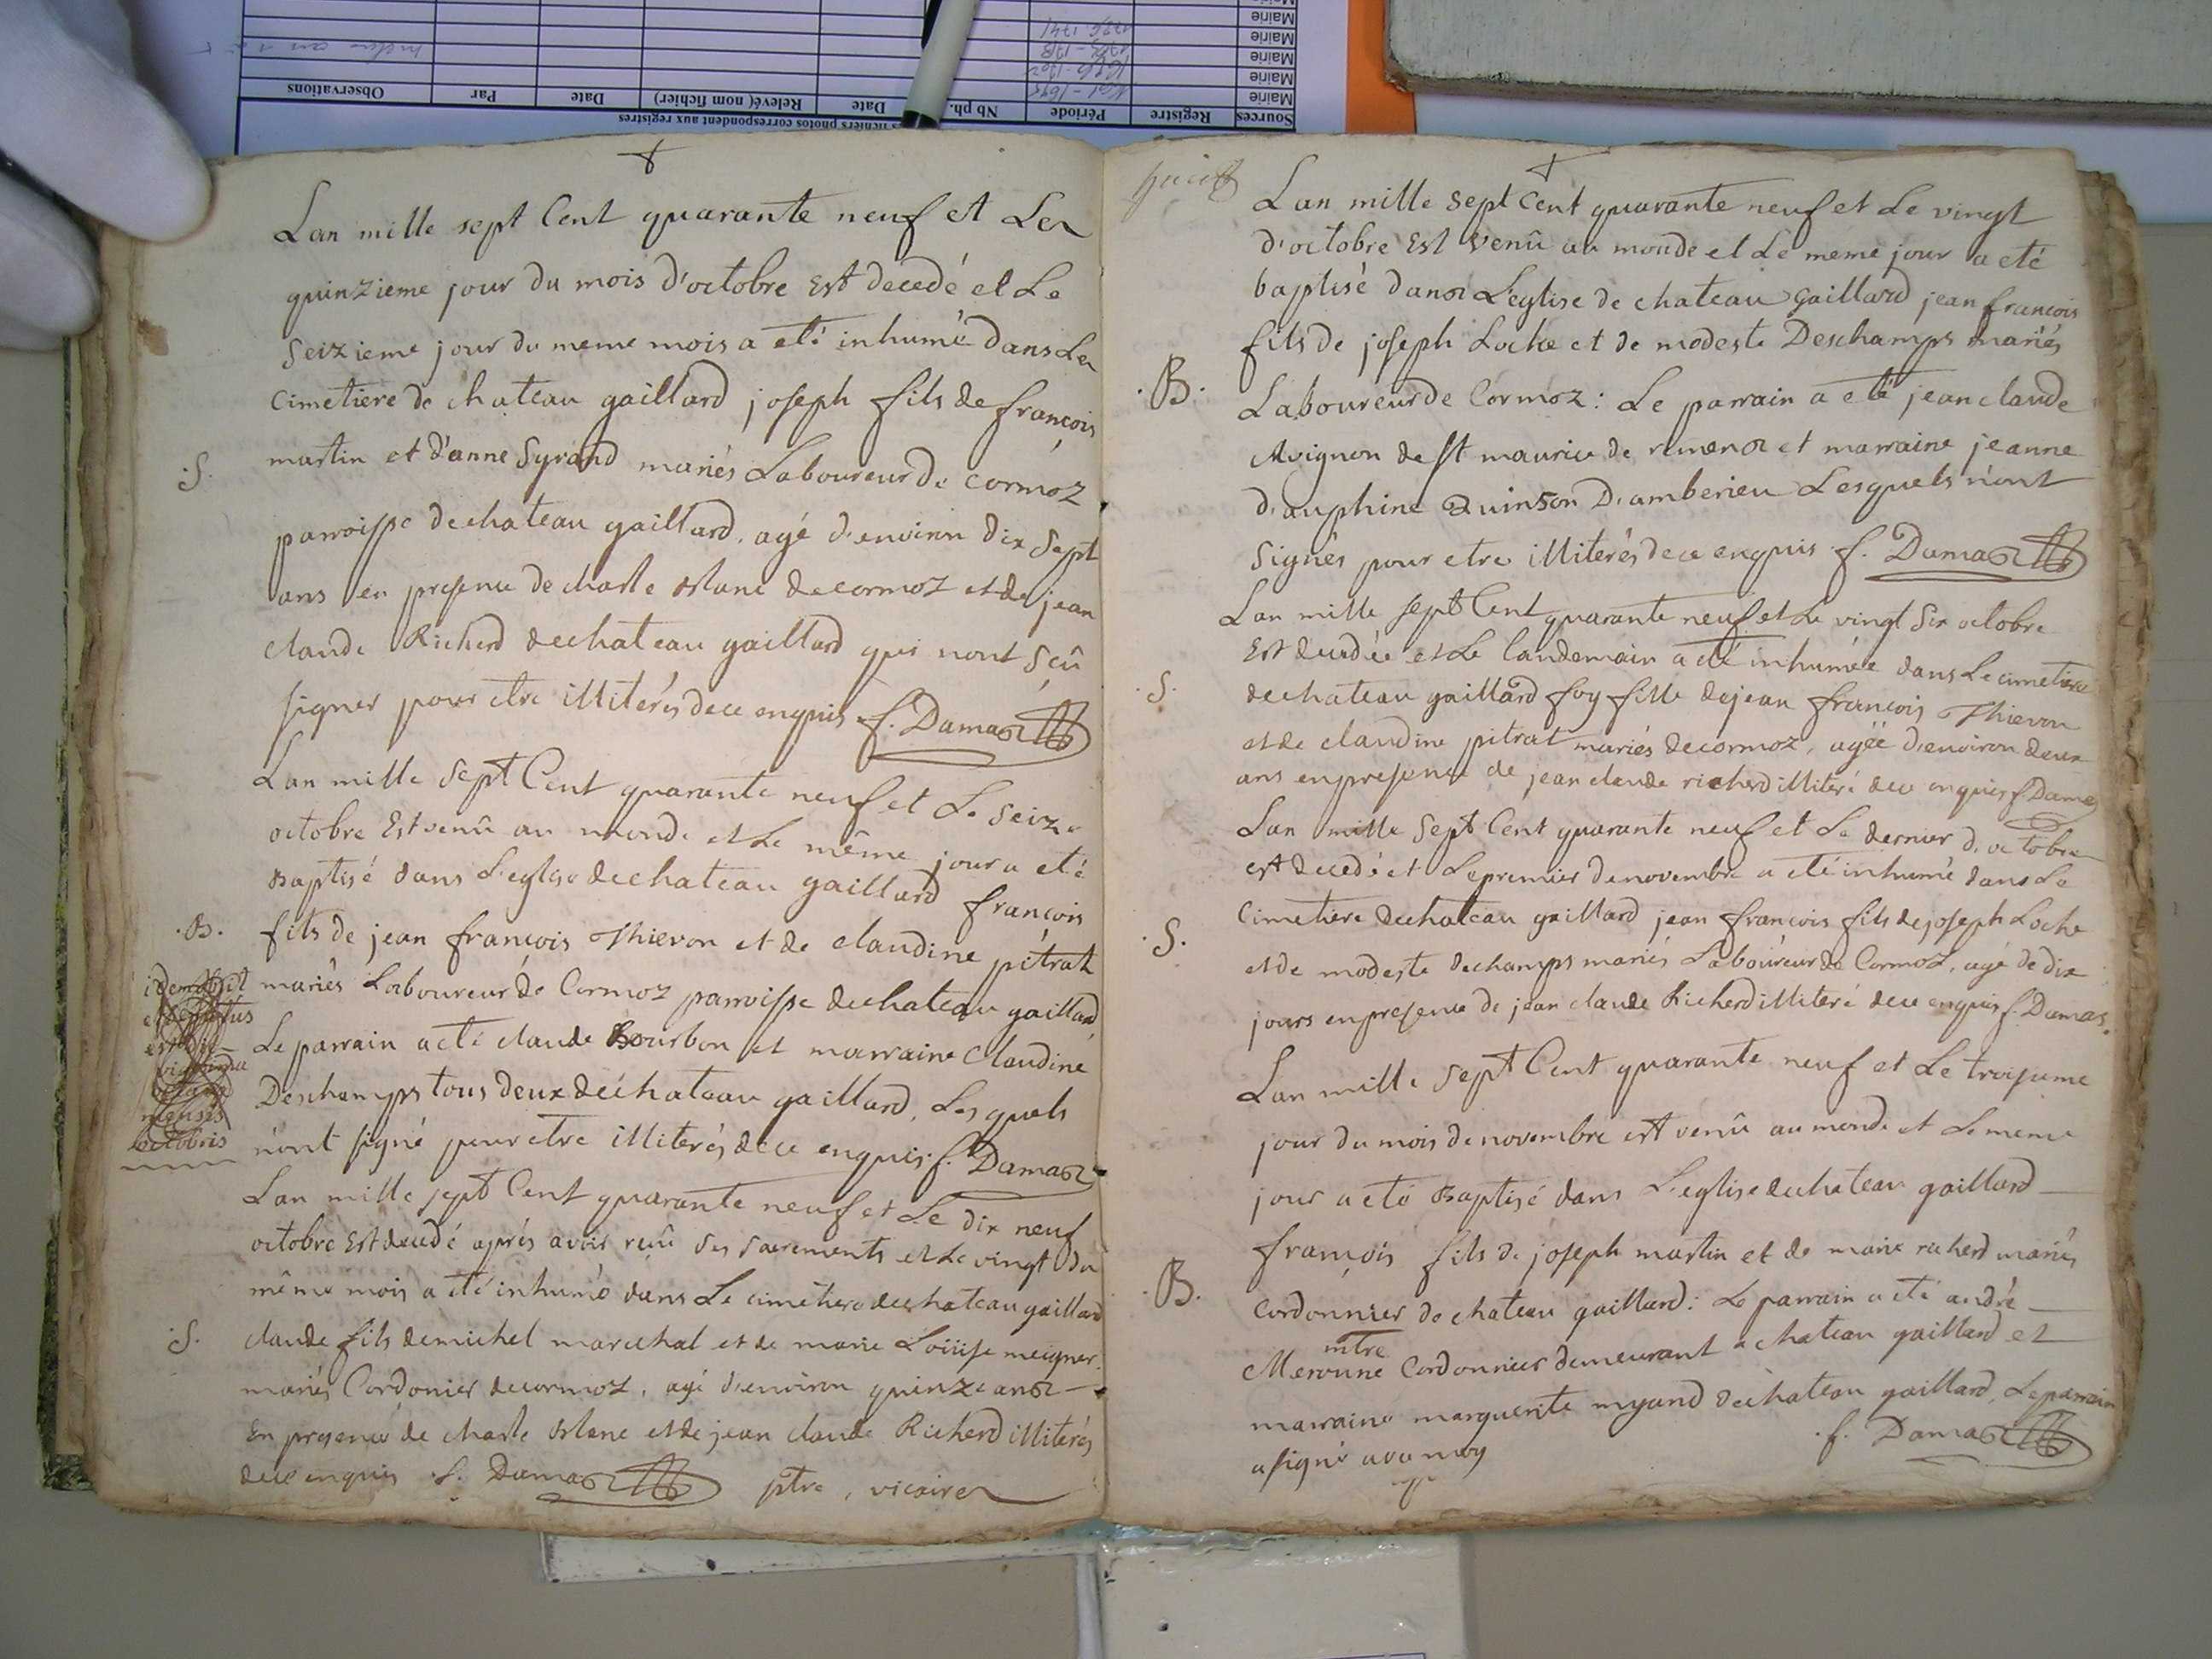 Sources Registre Période Nb ph. Date Relevé( nom fichier) Date Par Observations
Mairie
Mairie
Mairie
Mairie
Mairie
Lan mille sept Cent quarante neuf et Le
quinzieme jour du mois d'octobre Est decedé et Le
seizieme jour du meme mois a eté inhumé dans Le
cimetiere de chateau gaillard joseph fils de françois
S. martin et d'anne Syrand mariés Laboureur de cormoz
parroisse de chateau gaillard, agé d'environ dix sept
ans en presence de charle orlane de cormoz et de jean
claude Richerd de chateau gaillard qui nont sçû
signer pour etre illiterés de ce enquis f. Damas
Lan mille sept Cent quarante neuf et Le seize
octobre Est venû au monde et Le même jour a eté
Baptisé dans L'eglise de chateau gaillard françois
.B. fils de jean françois Thievon et de claudine pitrat
mariés Laboureur de Cormoz parroisse de chateau gaillard
Le parrain a eté claude Bourbon et marraine Claudine
Deschamps tous deux de chateau gaillard, Lesquels
n'ont signé pour etre illiterés de ce enquis f. Damas
idem obiit
mensis
octobris
Lan mille sept Cent quarante neuf et Le dix neuf
octobre Est decedé aprés avoir reçû ses sacrements et Le vingt du
même mois a eté inhumé dans Le cimetiere de chateau gaillard
S. claude fils de michel marechal et de marie Loüise meigner
mariés Cordonier de cormoz, agé d'environ quinze ans
En presence de charle orlane et de jean claude Richerd illiterés
de ce enquis f. Damas ptre, vicaire
Lan mille sept Cent quarante neuf et Le vingt
d'octobre Est venû au monde et Le meme jour a eté
baptisé dans L'eglise de chateau gaillard jean françois
fils de joseph Loche et de modeste Deschamps mariés
.B. Laboureur de Cormoz: Le parrain a eté jean claude
Avignon de st maurice de remens et marraine jeanne
d'auphine Quinson D'amberieu Lesquels n'ont
signés pour etre illiterés de ce enquis f. Damas
Lan mille sept Cent quarante neuf et Le vingt six octobre
Est decedée et Le landemain a eté inhumée dans Le cimetiere
.S. de chateau gaillard foy fille de jean françois Thievon
et de claudine pitrat mariés de cormoz, agée d'environ deux
ans en presence de jean claude richerd illiteré de ce enquis f. Damas
Lan mille sept Cent quarante neuf et Le dernier d'octobre
est decedé et Le premier de novembre a eté inhumé dans Le
Cimetiere de chateau gaillard jean françois fils de joseph Loche
.S. et de modeste dechamps mariés Laboureur de Cormoz, agé de dix
jours en presence de jean claude Richerd illiteré de ce enquis f. Damas.
Lan mille sept Cent quarante neuf et Le troisieme
jour du mois de novembre est venû au monde et Le meme
jour a eté Baptisé dans L'eglise de chateau gaillard
françois fils de joseph martin et de marie richerd mariés
.B. Cordonnier de chateau gaillard: Le parrain a eté andré
Meroune mtre Cordonnier demeurant a chateau gaillard et
marraine marguerite myand de chateau gaillard, Le parrain
a signé avec moy f. Damas